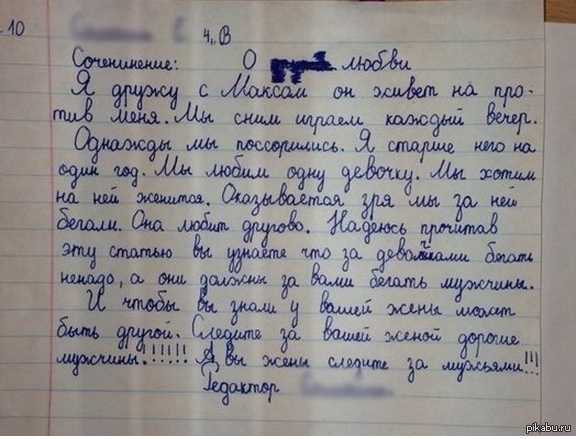 . 10
4 „В
Соченинение: О любви
Я дружу с Максом он живет на про-
тив меня. Мы сним играем каждый вечер.
Однажды мы поссорились. Я старше него на
один год. Мы любим одну девочку. Мы хотим
на ней женится. Оказывается зря мы за ней
бегали. Она любит другово. Надеюсь прочитав
эту статью вы узнаете что за девочками бегать
ненадо, а они должны за вами бегать мужчины.
И чтобы вы знали у вашей жены может
быть другой. Следите за вашей женой дорогие
мужчины!!!!!! А вы жены следите за мужьями!!!
Редактор
pikabu.ru